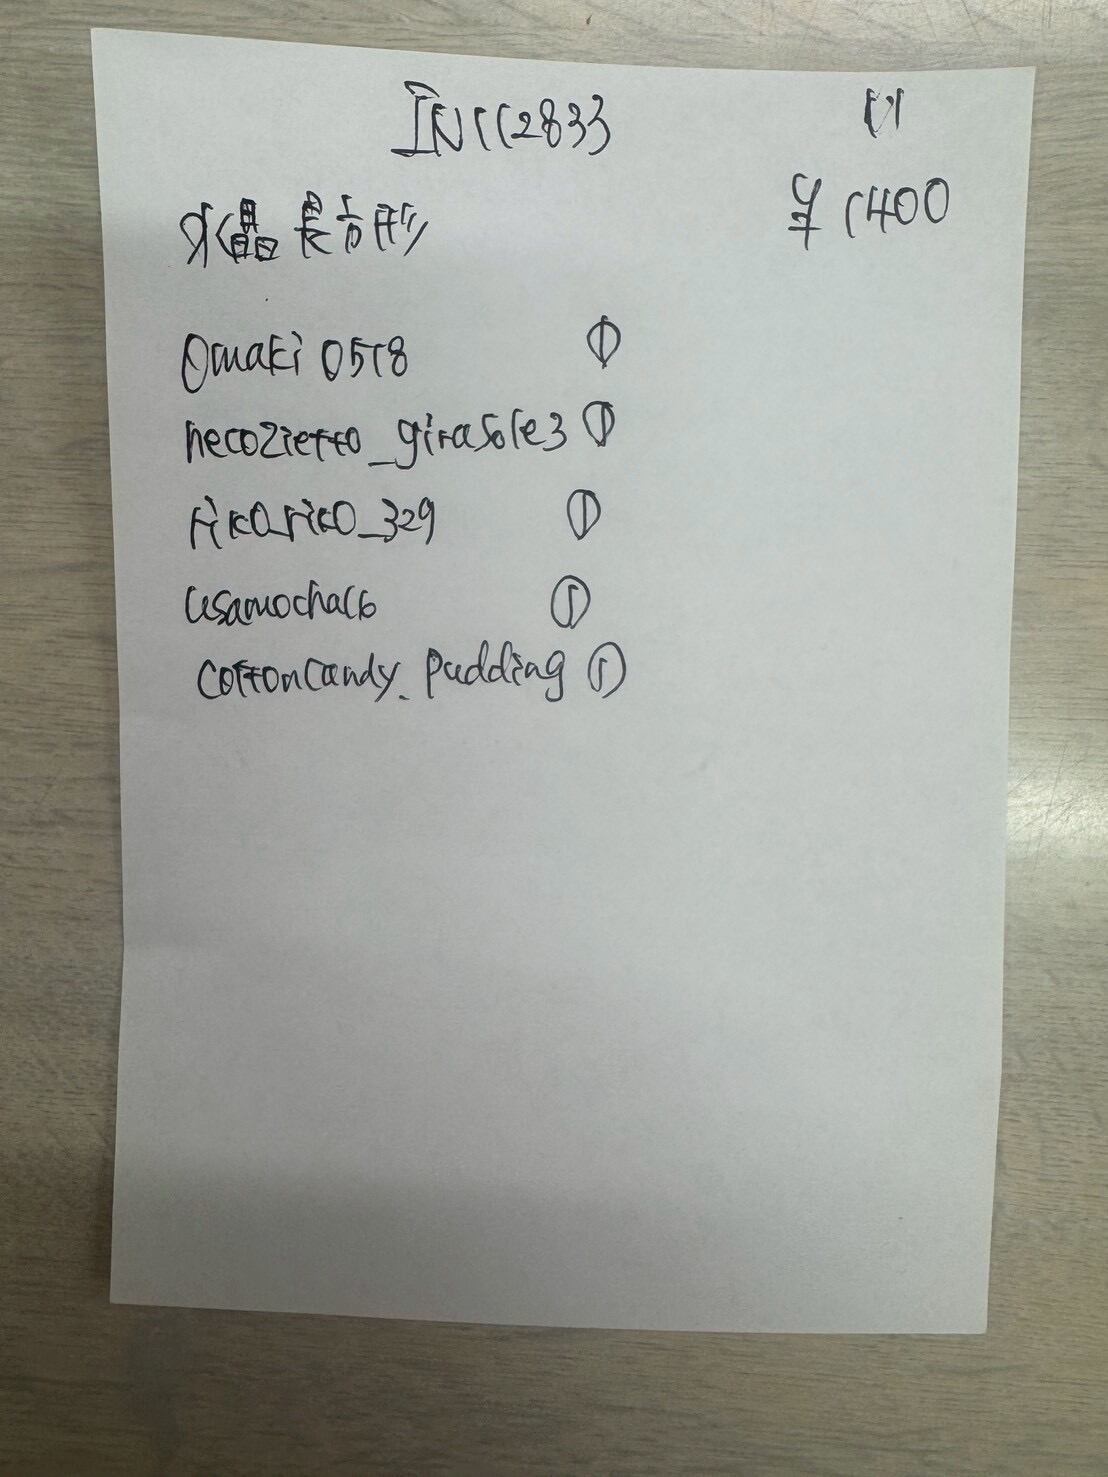 IN112833
水晶 長方形
¥1400
Omaki 0518 ①
necozietto_girasole3 ①
riko_rico_329 ①
usamocha16 ①
cottoncandy_pudding ①